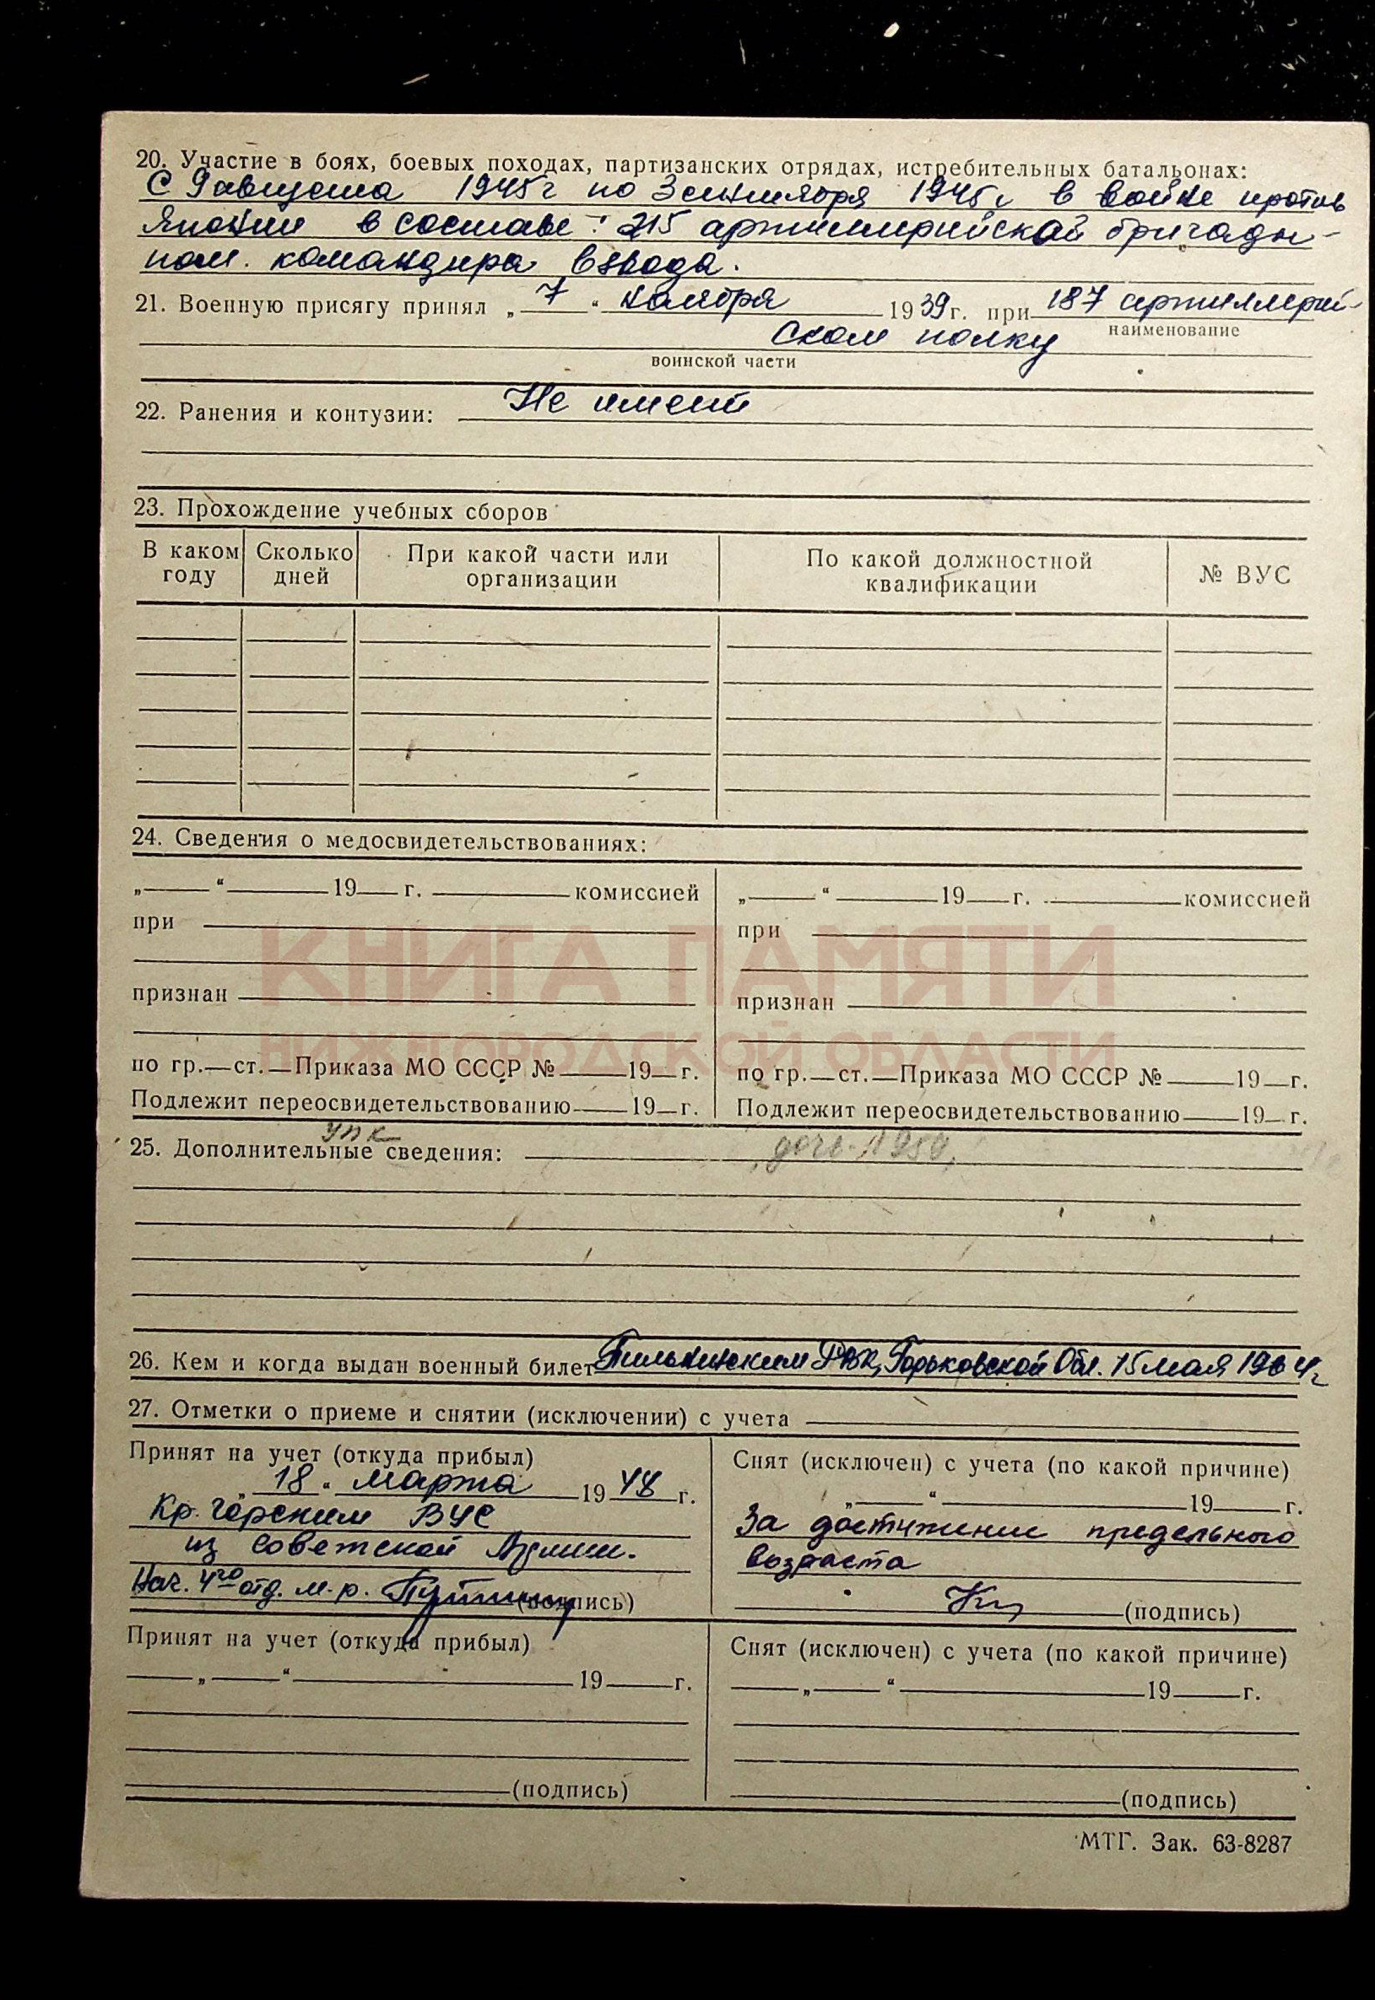 20. Участие в боях, боевых походах, партизанских отрядах, истребительных батальонах:
С 9 августа 1945 г по 3 сентября 1945 г в войне против
Японии в составе: 215 артиллерийской бригады -
пом. командира взвода.
21. Военную присягу принял „ 7 “ ноября 1939 г. при 187 артиллерий-
наименование
ском полку
воинской части
22. Ранения и контузии: Не имеет
23. Прохождение учебных сборов
В каком году Сколько дней При какой части или организации По какой должностной квалификации № ВУС
24. Сведения о медосвидетельствованиях:
„ “ 19 г. комиссией „ “ 19 г. комиссией
при при
КНИГА ПАМЯТИ
признан признан
НИЖЕГОРОДСКОЙ ОБЛАСТИ
по гр. ст. Приказа МО СССР № 19 г. по гр. ст. Приказа МО СССР № 19 г.
Подлежит переосвидетельствованию 19 г. Подлежит переосвидетельствованию 19 г.
УПК
25. Дополнительные сведения: 1950
26. Кем и когда выдан военный билет Пильнинским РВК, Горьковской Обл. 15 мая 1964 г
27. Отметки о приеме и снятии (исключении) с учета
Принят на учет (откуда прибыл) Снят (исключен) с учета (по какой причине)
„ 18 “ марта 1948 г. „ “ 19 г.
ВУС За достижение предельного
из Советской Армии. возраста
Нач. 4го отд. м-р. (подпись) (подпись)
Принят на учет (откуда прибыл) Снят (исключен) с учета (по какой причине)
„ “ 19 г. „ “ 19 г.
(подпись) (подпись)
МТГ. Зак. 63-8287